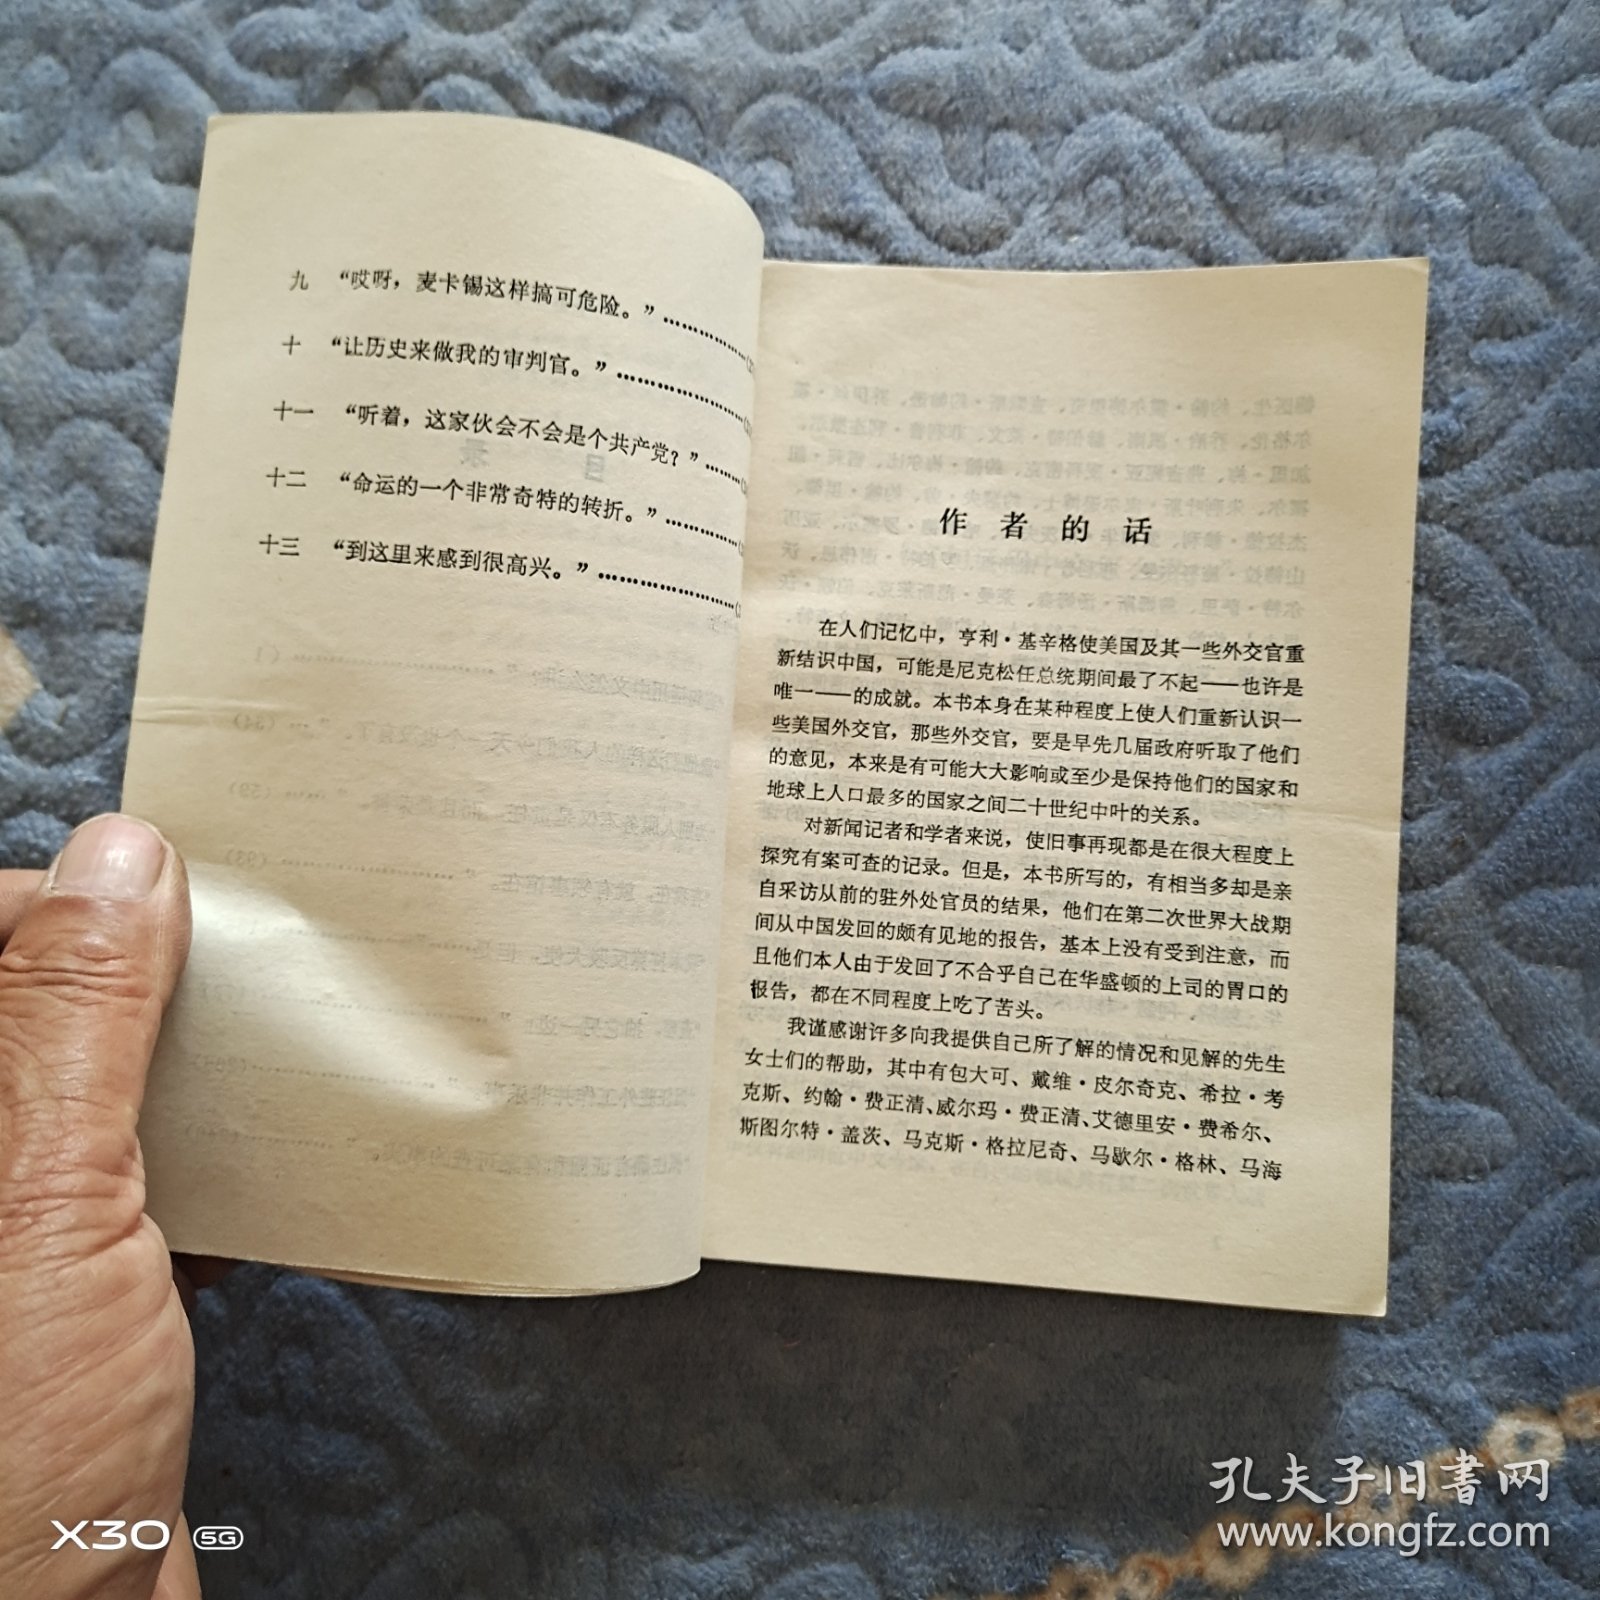 九 “哎呀，麦卡锡这样搞可危险。”
十 “让历史来做我的审判官。”
十一 “听着，这家伙会不会是个共产党？”
十二 “命运的一个非常奇特的转折。”
十三 “到这里来感到很高兴。”
作者的话
在人们记忆中，亨利·基辛格使美国及其一些外交官重
新结识中国，可能是尼克松任总统期间最了不起——也许是
唯一——的成就。本书本身在某种程度上使人们重新认识一
些美国外交官，那些外交官，要是早先几届政府听取了他们
的意见，本来是有可能大大影响或至少是保持他们的国家和
地球上人口最多的国家之间二十世纪中叶的关系。
对新闻记者和学者来说，使旧事再现都是在很大程度上
探究有案可查的记录。但是，本书所写的，有相当多却是亲
自采访从前的驻外处官员的结果，他们在第二次世界大战期
间从中国发回的颇有见地的报告，基本上没有受到注意，而
且他们本人由于发回了不合乎自己在华盛顿的上司的胃口的
报告，都在不同程度上吃了苦头。
我谨感谢许多向我提供自己所了解的情况和见解的先生
女士们的帮助，其中有包大可、戴维·皮尔奇克、希拉·考
克斯、约翰·费正清、威尔玛·费正清、艾德里安·费希尔、
斯图尔特·盖茨、马克斯·格拉尼奇、马歇尔·格林、马海
X30 5G
孔夫子旧书网
www.kongfz.com